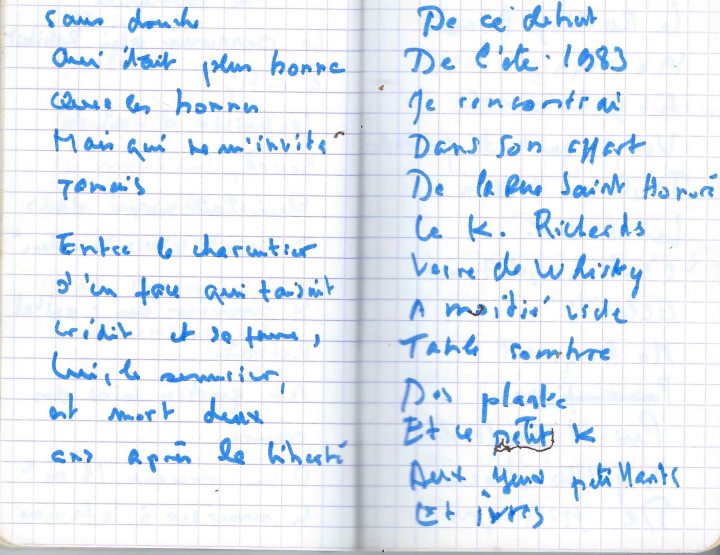 sans douche
Qui était plus bonne
les bonnes
Mais qui ne m'invita
Jamais
Entre le charcutier
d'en face qui faisait
crédit et sa femme,
Lui, le
est mort deux
ans après la liberté
De ce début
De l'été 1983
Je rencontrai
Dans son appart
De la Rue Saint Honoré
Le K. Richards
Verre de Whisky
A moitié vide
Table sombre
Dos
Et le petit K
Aux yeux pétillants
Et ivres